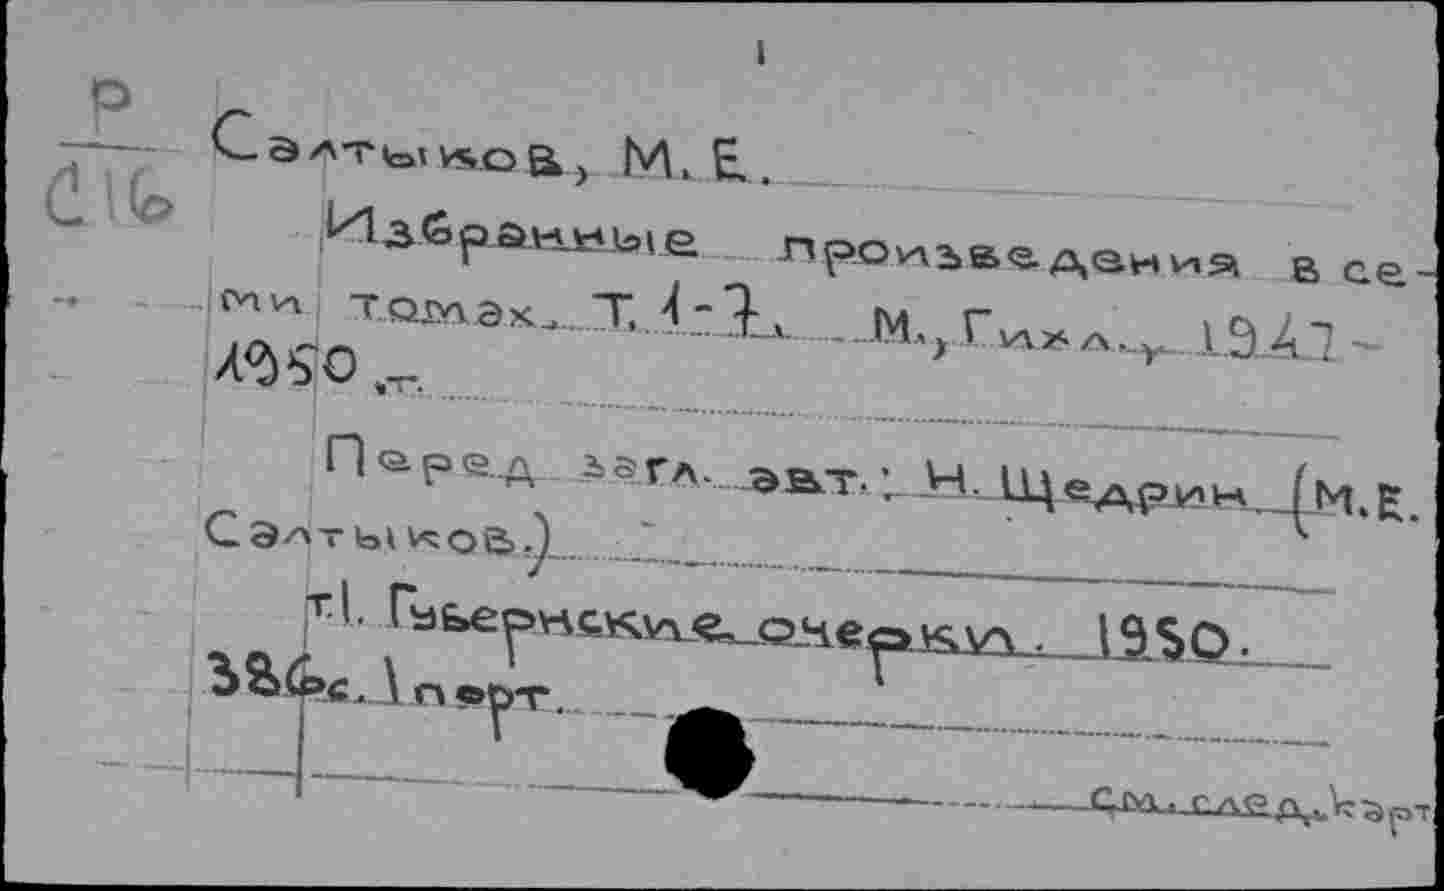 1
Р
С16
Салтыков, М. Е.
Избранные произведения в се-
ми томах. Т. 1-7. М., Гихл., 1947-
1950.-.
Перед загл. авт.: Н. Щедрин. (М.Е.
Салтыков.)
т.1. Губернские очерки. 1950.
386с. 1 порт.
См. след. карт